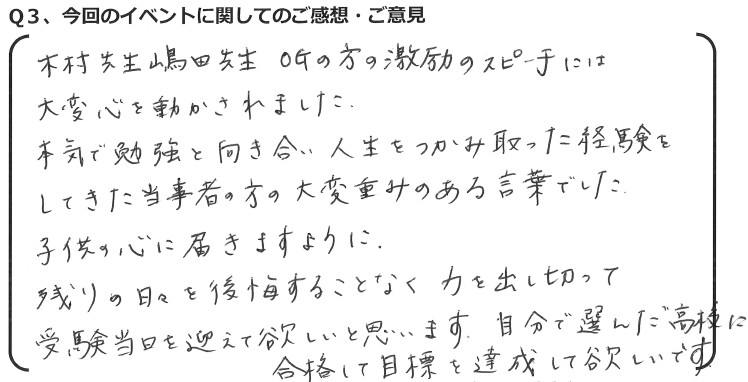 Q３、今回のイベントに関してのご感想・ご意見
木村先生嶋田先生 OGの方の激励のスピーチには
大変心を動かされました.
本気で勉強と向き合い人生をつかみ取った経験を
してきた当事者の方の大変重みのある言葉でした.
子供の心に届きますように.
残りの日々を後悔することなく力を出し切って
受験当日を迎えて欲しいと思います. 自分で選んだ高校に
合格して目標を達成して欲しいです.